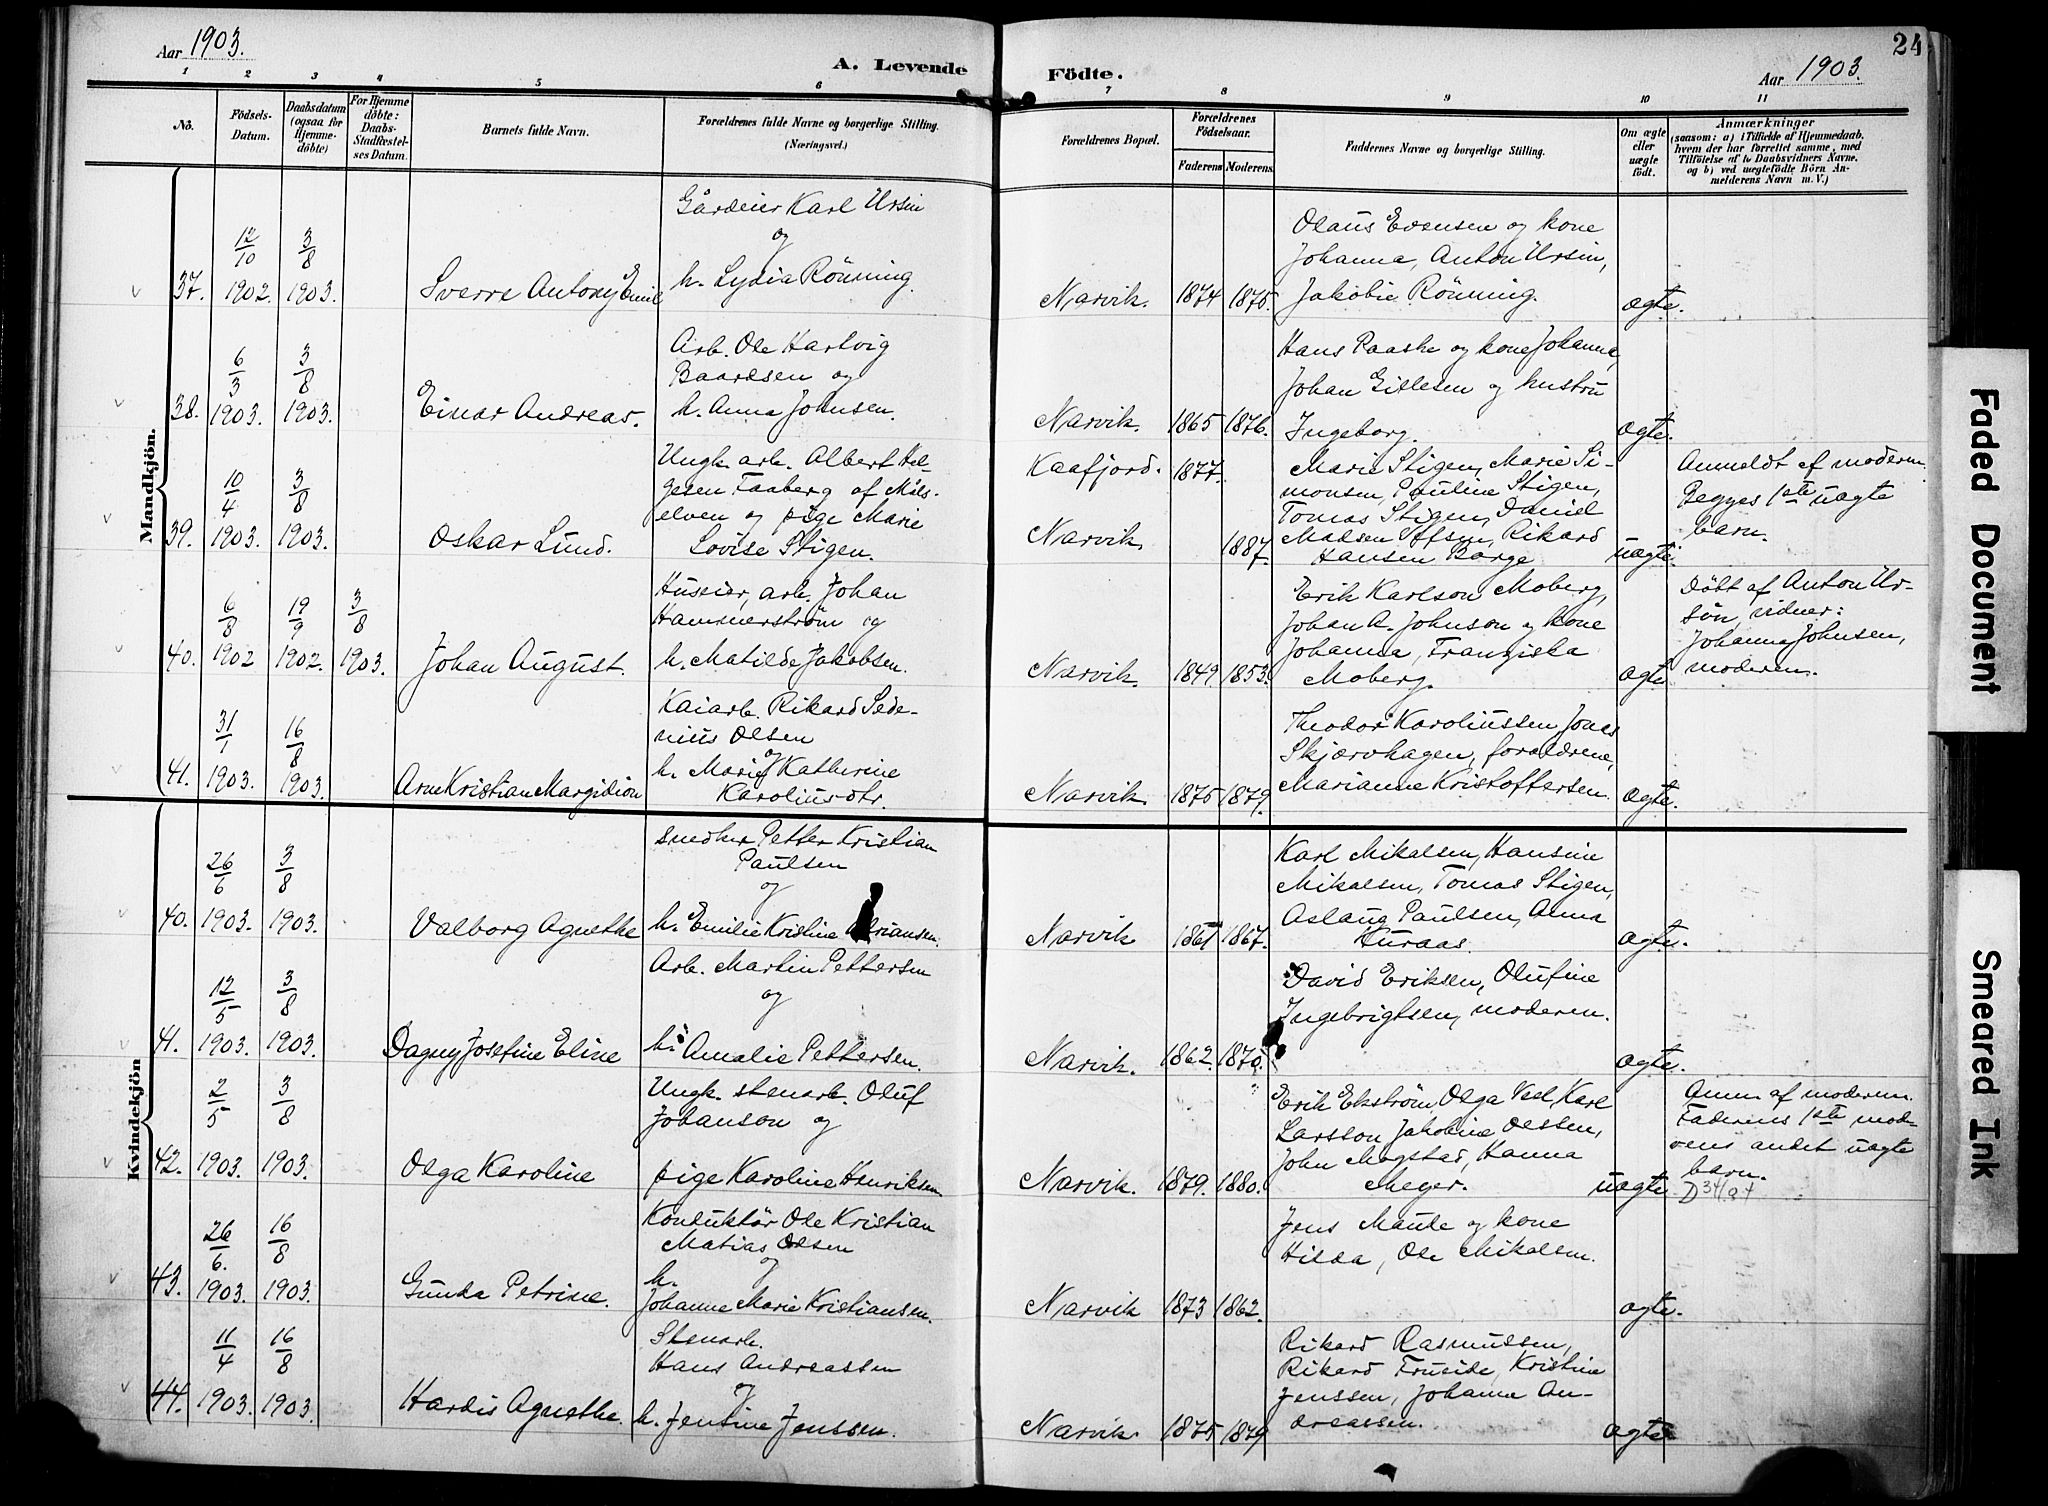 Aar 1903.
A. Levende Födte.
Aar 1903.
24
1 2 3 4 5 6 7 8 9 10 11
No.
Födsels-Datum.
Daabsdatum (ogsaa for Hjemme-döbte)
For Hjemme döbte: Daabs-Stadfæstel-ses Datum.
Barnets fulde Navn.
Forældrenes fulde Navne og borgerlige Stilling.
(Næringsvei.)
Forældrenes Bopæl.
Forældrenes Födselsaar.
Faderens Moderens.
Faddernes Navne og borgerlige Stilling.
Om ægte eller uægte födt.
Anmærkninger
(saasom: a) i Tilfælde af Hjemmedaab.
hvem der har forrettet samme, med
Tilföielse af to Daabsvidners Navne.
og b) ved uægtefödte Börn An-
melderens Navn m. V.)
Mandkjön.
37. 12/10 1902. 3/8 1903.
Sverre Antony Emil
Gårdeier Karl Ursin
og
h. Lydia Rönning.
Narvik. 1874 1875.
Olaus Evensen og kone
Johanna, Anton Ursin,
Jakobie Rönning.
ægte.
38. 6/3 1903. 3/8 1903.
Einar Andreas.
Arb. Ole Hartvig
Baardsen og
h. Anna Johnsen.
Narvik. 1865 1876.
Hans Paaske og kone Johanna,
Johan Gislesen og hustru
Ingeborg.
ægte.
39. 10/4 1903. 3/8 1903.
Oskar Lund.
Ungk. arb. Albert Hel-
gesen Faaberg af Måls-
elven og pige Marie
Lovise Stigen.
Kaafjord. 1877.
Narvik. 1887.
Marie Stigen, Marie Si-
monsen, Pauline Stigen,
Tomas Stigen, Daniel
Madsen, Rikard
Hansen Borge
uægte.
Anmeldt af moderen.
Begges 1ste uægte
barn.
40. 6/8 1902 19/9 1902. 3/8 1903.
Johan August.
Huseier, arb. Johan
Hammerström og
h. Matilde Jakobsen.
Narvik. 1849 1853.
Erik Karlson Moberg,
Johan A. Johnson og kone
Johanna, Franziska
Moberg.
ægte
Döbt af Anton Ur-
sön, vidner:
Johanna Johnsen,
moderen.
41. 31/1 1903. 16/8 1903.
Arne Kristian Margidion
Kaiarb. Rikard Sede-
nius Olsen
og
h. Marie Katherine
Karoliusdtr.
Narvik. 1875 1879.
Theodor Karoliussen, Jonas
Skjærvhagen, forældrene,
Marianne Kristoffersen.
ægte.
Kvindekjön
40. 26/6 1903. 3/8 1903.
Valborg Agnethe
Snedker Petter Kristian
Paulsen
og
h. Emilie Kristine
Narvik 1861 1867.
Karl Mikalsen, Hansine
Mikalsen, Tomas Stigen,
Aslaug Paulsen, Anna
Kuraas.
ægte.
41. 12/5 1903. 3/8 1903.
Dagny Josefine Eline
Arb. Martin Pettersen
og
h. Amalie Pettersen.
Narvik. 1862. 1870.
David Eriksen, Olufine
Ingebrigtsen, moderen.
ægte.
42. 2/5 1903. 3/8 1903.
Olga Karoline
Ungk. stenarb. Oluf
Johanson og
pige Karoline Henriksen
Narvik. 1879. 1880.
Erik Ekström, Olga Karl
Larsson, Jakobine Olssen,
John Mogstad, Hanna
Meyer.
uægte
Anm. af moderen.
Faderens 1ste mod-
erens andet uægte
barn.
43. 26/6. 1903. 16/8 1903.
Gunda Petrine.
Konduktör Ole Kristian
Matias Olsen
og
h.
Johanne Marie Kristiansen.
Narvik 1873 1862.
Jens Maule og kone
Hilda, Ole Mikalsen.
ægte.
44. 11/4 1903. 16/8 1903.
Hardis Agnethe.
Stenarb.
Hans Andreassen
og
h. Jentine Jenssen.
Narvik. 1875 1879
Rikard Rasmussen,
Rikard Trueide, Kristine
Jenssen, Johanne An-
dreassen.
ægte
Faded Document
Smeared Ink